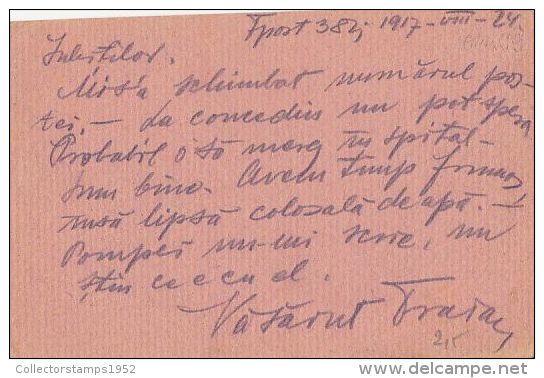 Fpost 382, 1917-VIII-24.
Iubiților.
Mis'a schimbat numărul poș-
tei, - La concediu nu pot spera
Probabil o să merg în spital -
Sunt bine. Avem timp frumos
însă lipsă colosală de apă. -
Pompei nu-mi scrie, nu
știu ce e cu el.
Vă sărut Traian
2,5
Collectorstamps1952
delcampe.net